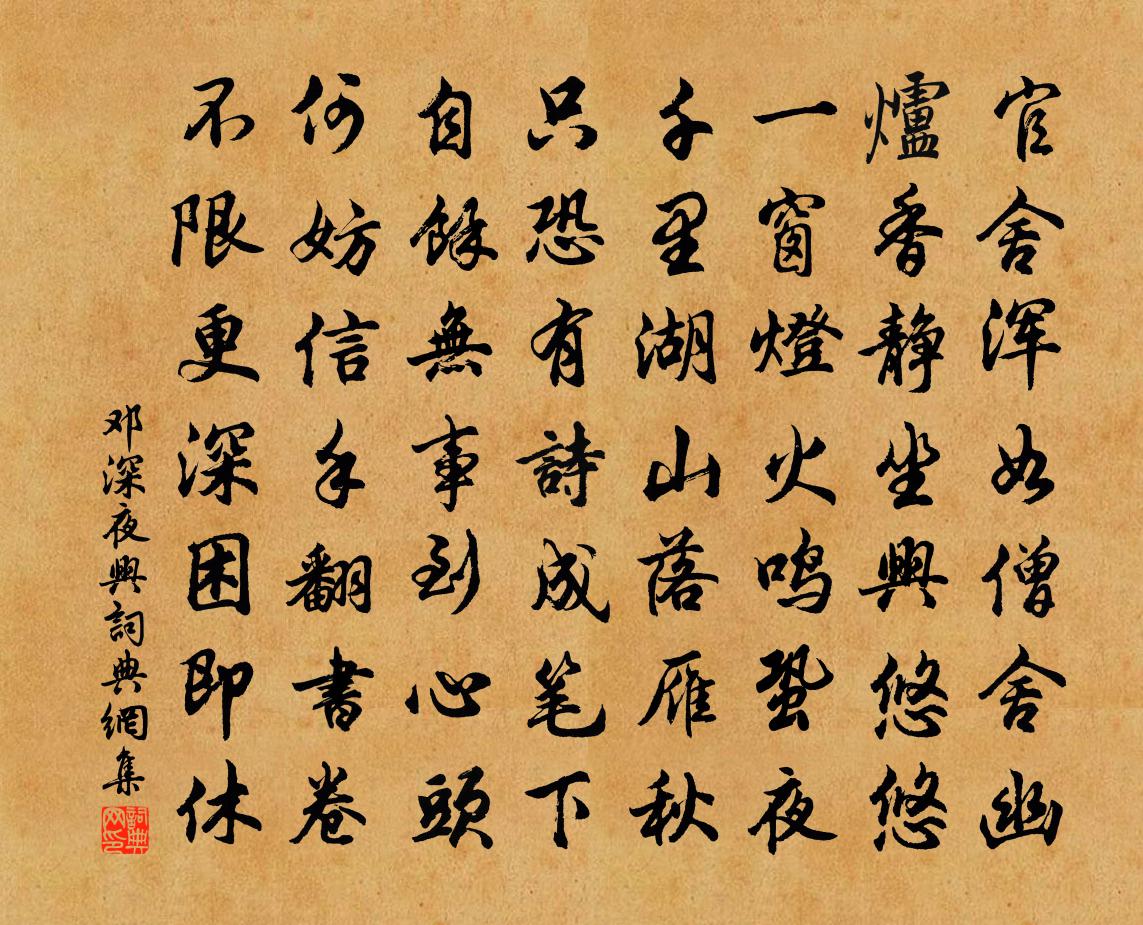 官舍浑如僧舍幽
爐香靜坐興悠悠
一窗燈火鸣蛩夜
千里湖山落雁秋
只恐有詩成笔下
自餘無事到心頭
何妨信手翻書卷
不限更深困即休
邓深夜興詞典網集
詞典网印